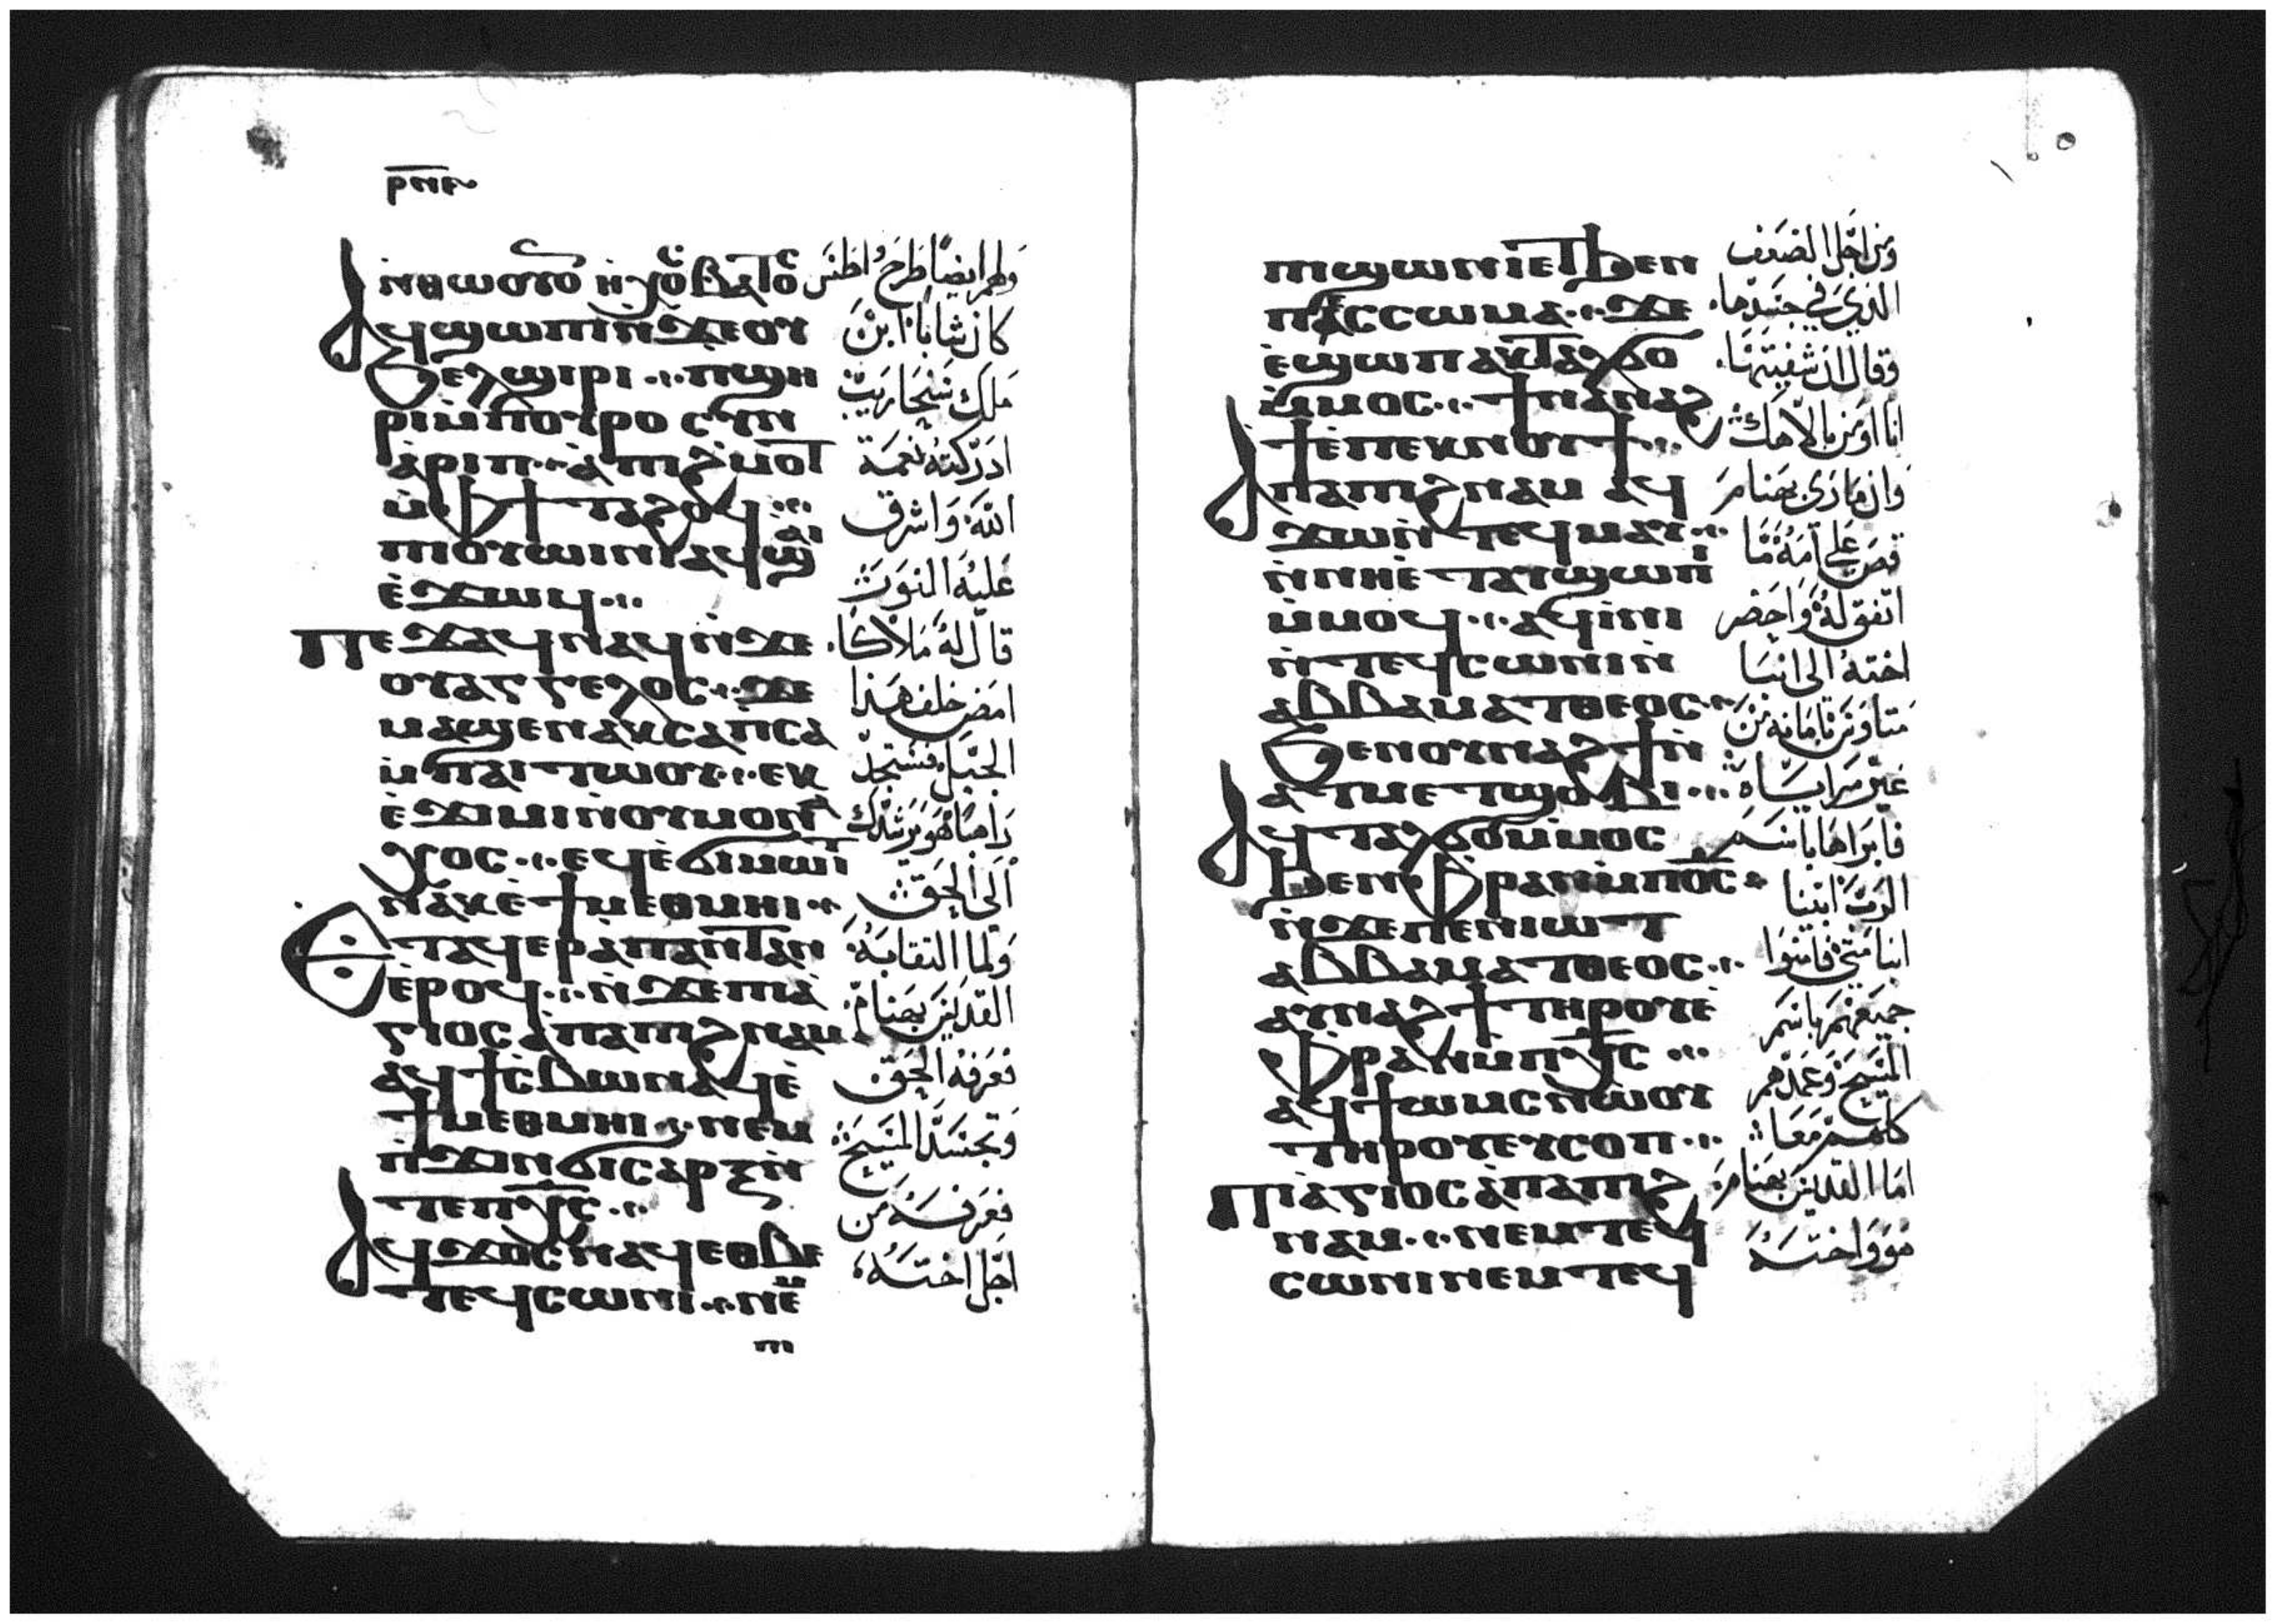 ⲣⲛⲉ
ⲛ̇ⲑⲱⲟⲩ ⲟⲛ
ⲁϥϣⲱⲡⲓ ⲛ̇ϫⲉ ⲟⲩ
ϧⲉⲗϣⲓⲣⲓ ⲡϣⲏ
ⲣⲓ ⲙ̇ⲡⲟⲩⲣⲟ ⲥⲩⲛ
ⲁ̀ⲣⲓⲡ ⲁ̀ ⲡⲓϩⲙⲟⲧ
ⲙ̇ⲫϯ ⲧⲁϩⲟϥ
ⲡⲓⲟⲩⲱⲓⲛⲓ ⲁϥϣⲁⲓ
ⲉ̇ϫⲱϥ
ⲡⲉϫⲁϥ ⲛⲁϥ ⲛ̇ϫⲉ
ⲟⲩⲁⲅⲅⲉⲗⲟⲥ ϫⲉ
ⲙⲁϣⲉⲛⲁⲕ ⲥⲁⲡⲥⲁ
ⲙ̇ⲡⲁⲓⲧⲱⲟⲩ ⲉⲕ
ⲉ̇ϫⲓⲙⲓ ⲛ̇ⲟⲩⲙⲟⲛⲁ
ⲭⲟⲥ ⲉϥⲉ̇ϭⲓⲙⲱⲓⲧ
ⲛⲁⲕ ⲉ̇ϯⲙⲉⲑⲙⲏⲓ
ⲉⲧⲁϥⲉⲣⲁⲡⲁⲛⲧⲁⲛ
ⲉ̇ⲣⲟϥ ⲛ̇ϫⲉ ⲡⲓⲁ̇
ⲅⲓⲟⲥ ⲁ̇ⲡⲁ ⲡⲓϩⲛⲁⲙ
ⲁϥϯⲥⲃⲱ ⲛⲁϥ ⲉ̇
ϯⲙⲉⲑⲙⲏⲓ ⲛⲉⲙ
ⲡ̇ϫⲓⲛϭⲓⲥⲁⲣⲝ ⲛ̇
ⲧⲉ ⲡⲭ̅ⲥ̅
ⲁϥϫⲟⲥ ⲛⲁϥ ⲉⲑⲃⲉ
ⲧⲉϥⲥⲱⲛⲓ ⲛⲉⲙ
ⲡⲓ
ولهم ايضا طرح
كان شابا ابن
ملك سنحاريب
ادركته نعمة
الله واشرق
عليه النور
قال له ملاكا
امض خلف هذا
الجبل فستجد
راهبا هو يرشدك
الى الحق
ولما التقا به
القديس بهنام
فعرفه الحق
وتجسد المسيح
فعرفه من
اجل اخته
ⲡⲓϣⲱⲛⲓ ⲉⲧϧⲉⲛ
ⲡⲉⲥⲥⲱⲙⲁ ϫⲉ
ⲉ̇ϣⲱⲡ ⲁⲕⲧⲁⲗϭⲟ
ⲙ̇ⲙⲟⲥ ϯⲛⲁⲛⲁϩ
ϯ ⲉ̇ⲡⲉⲕⲛⲟⲩϯ
ⲁ̇ⲡⲁ ⲡⲓϩⲛⲁⲙ ⲁϥ
ϫⲱ ⲛ̇ⲧⲉϥⲙⲁⲩ
ⲛ̇ⲛⲏⲉ̇ⲧⲁⲩϣⲱⲡⲓ
ⲙ̇ⲙⲟϥ ⲁϥⲓ̇ⲛⲓ
ⲛ̇ⲧⲉϥⲥⲱⲛⲓ ⲛ̇
ⲁⲃⲃⲁ ⲙⲁⲧⲑⲉⲟⲥ
ϧⲉⲛ ⲟⲩⲛⲁϩϯ ⲛ̇
ⲁⲧⲙⲉⲧϣⲟⲃⲓ
ⲁϥⲧⲁⲗϭⲟ ⲙ̇ⲙⲟⲥ
ϧⲉⲛ ⲫⲣⲁⲛ ⲙ̇ⲡⲟ̅ⲥ̅
ⲛ̇ϫⲉ ⲡⲉⲛⲓⲱⲧ
ⲁⲃⲃⲁ ⲙⲁⲧⲑⲉⲟⲥ
ⲁⲩⲛⲁϩϯ ⲧⲏⲣⲟⲩ ⲉ̇
ⲫⲣⲁⲛ ⲙ̇ⲡⲭ̅ⲥ̅
ⲁϥϯⲱⲙⲥ ⲛⲱⲟⲩ
ⲧⲏⲣⲟⲩ ⲉⲩⲥⲟⲡ
ⲡⲓⲁ̇ⲅⲓⲟⲥ ⲁ̇ⲡⲁ ⲡⲓϩ
ⲛⲁⲙ ⲛⲉⲙ ⲧⲉϥ
ⲥⲱⲛⲓ ⲛⲉⲙ ⲧⲉϥ
ومن اجل الضعف
الذي في جسدها
وقال ان شفيتها
انا اومن بالاهك
وان ماري بهنام
قص على امه ما
اتفق له واحضر
اخته الى انبا
متاوس بامانه من
غير مراياه
فابراها باسم
الرب ابينا
انبا متى فامنوا
جميعهم باسم
المسيح وعمدهم
كلهم معا
اما القديس بهنام
هو واخته